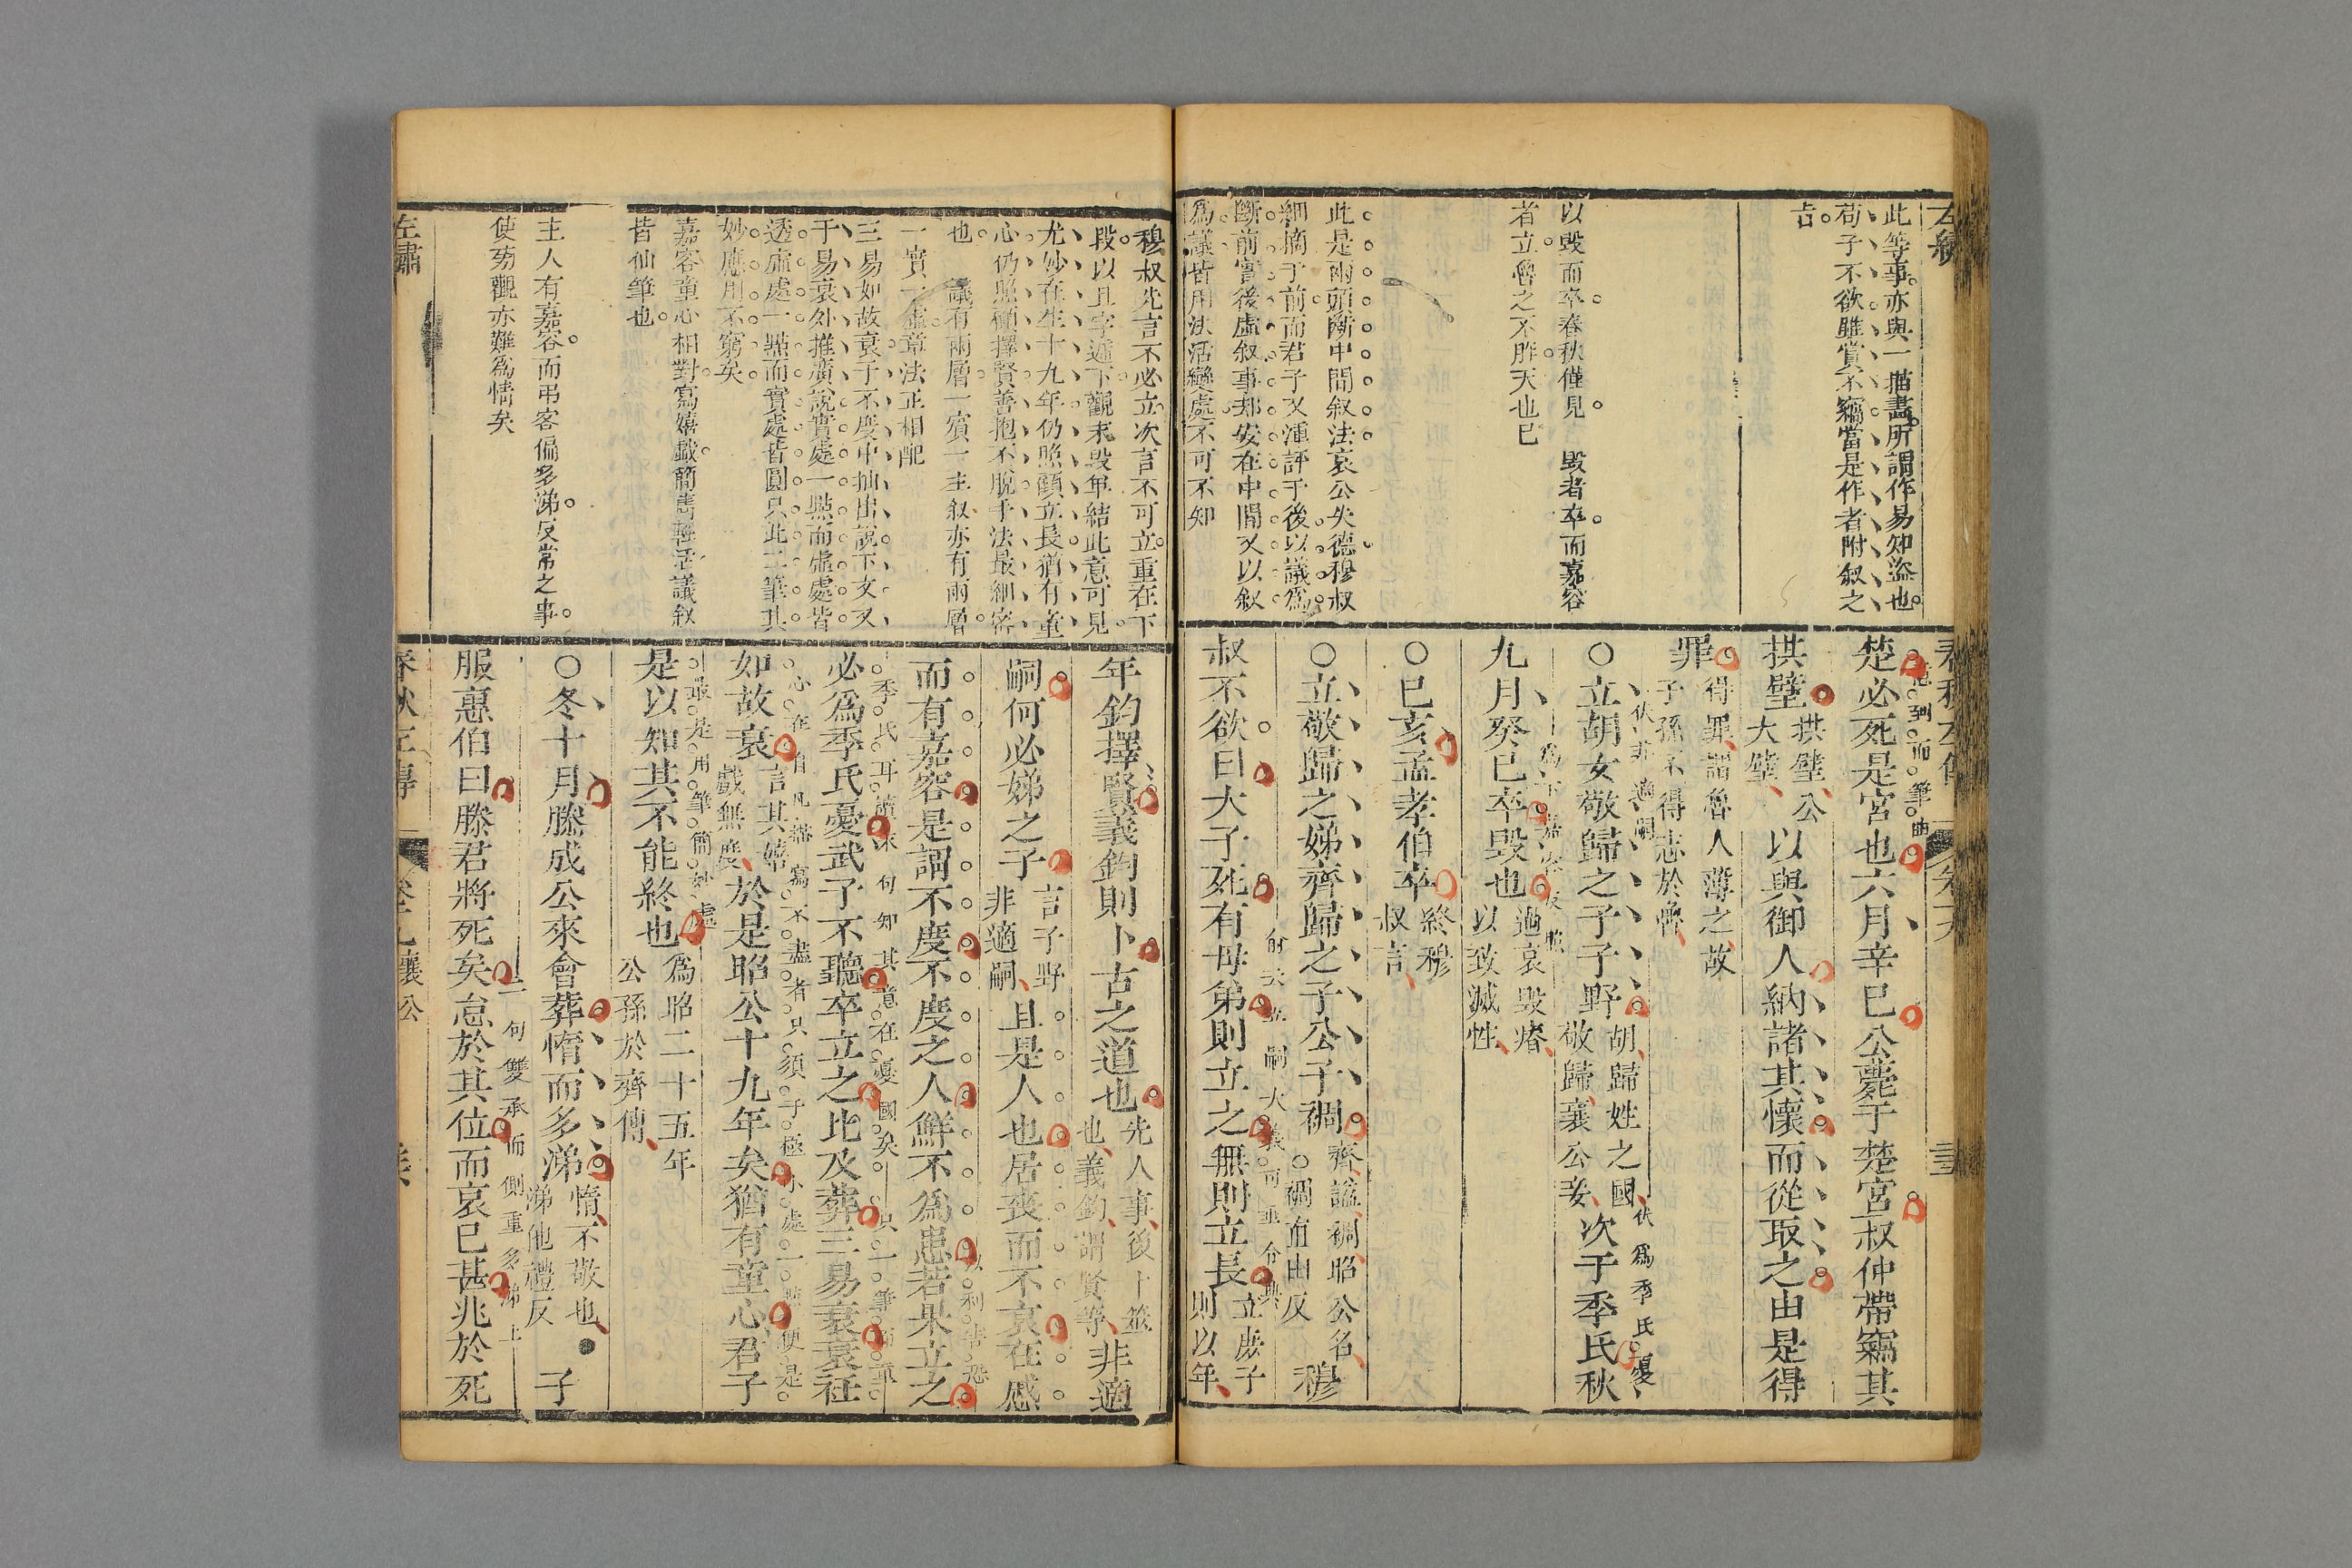 此等事亦與一描畫所謂作易知盜也
荀子不欲雖賞不竊當是作者附叙之
旨
以毀而卒春秋僅見　毀者卒而嘉容
者立魯之不胙天也已
此是兩頭斷中間叙法哀公失德穆叔
細摘于前而君子又湩評于後以議爲
斷前實後虛叙事却安在中間又以叙
爲議皆用法活變處不可不知
楚必死是宮也六月辛巳公薨于楚宮叔仲帶竊其
拱璧
拱璧公
大璧
以與御人納諸其懷而從取之由是得
罪
得罪謂魯人薄之故
子孫不得志於魯
○立胡女敬歸之子子野
胡歸姓之國
敬歸襄公妾
次于季氏秋
伏爲季氏憂
伏非適嗣
九月癸巳卒毀也
過哀毀瘠
以致滅性
○己亥孟孝伯卒
終穆
叔言
○立敬歸之娣齊歸之子公子裯
齊諡裯昭公名
○裯直由反
穆
叔不欲曰大子死有母弟則立之無則立長
立庶子
則以年
穆叔先言不必立次言不可立重在下
段以且字遞下觀末段年結此意可見
尤妙在生十九年仍照顧立長猶有童
心仍照顧擇賢善抱不脫手法最細密
也　議有兩層一賓一主叙亦有兩層
一實一虛章法正相配
三易如故衰于不度中抽出說下文又
于易衰外推廣說實處一點而虛處皆
透虛處一點而實處皆圓只此二筆其
妙應用不窮矣
嘉容童心相對寫嬉戲簡雋輕活議叙
皆仙筆也
主人有嘉容而弔客偏多涕反常之事
使旁觀亦難爲情矣
左繡
年鈞擇賢義鈞則卜古之道也
先人事後卜筮
也義鈞謂賢等
非適
嗣何必娣之子
言子野
非適嗣
且是人也居喪而不哀在慼
而有嘉容是謂不度不度之人鮮不爲患若果立之
必爲季氏憂武子不聽卒立之比及葬三易衰衰衽
如故衰
言其嬉
戲無度
於是昭公十九年矣猶有童心君子
是以知其不能終也
爲昭二十五年
公孫於齊傳
○冬十月滕成公來會葬惰而多涕
惰不敬也
涕他禮反
子
服惠伯曰滕君將死矣怠於其位而哀已甚兆於死
二句雙承而側重多涕上